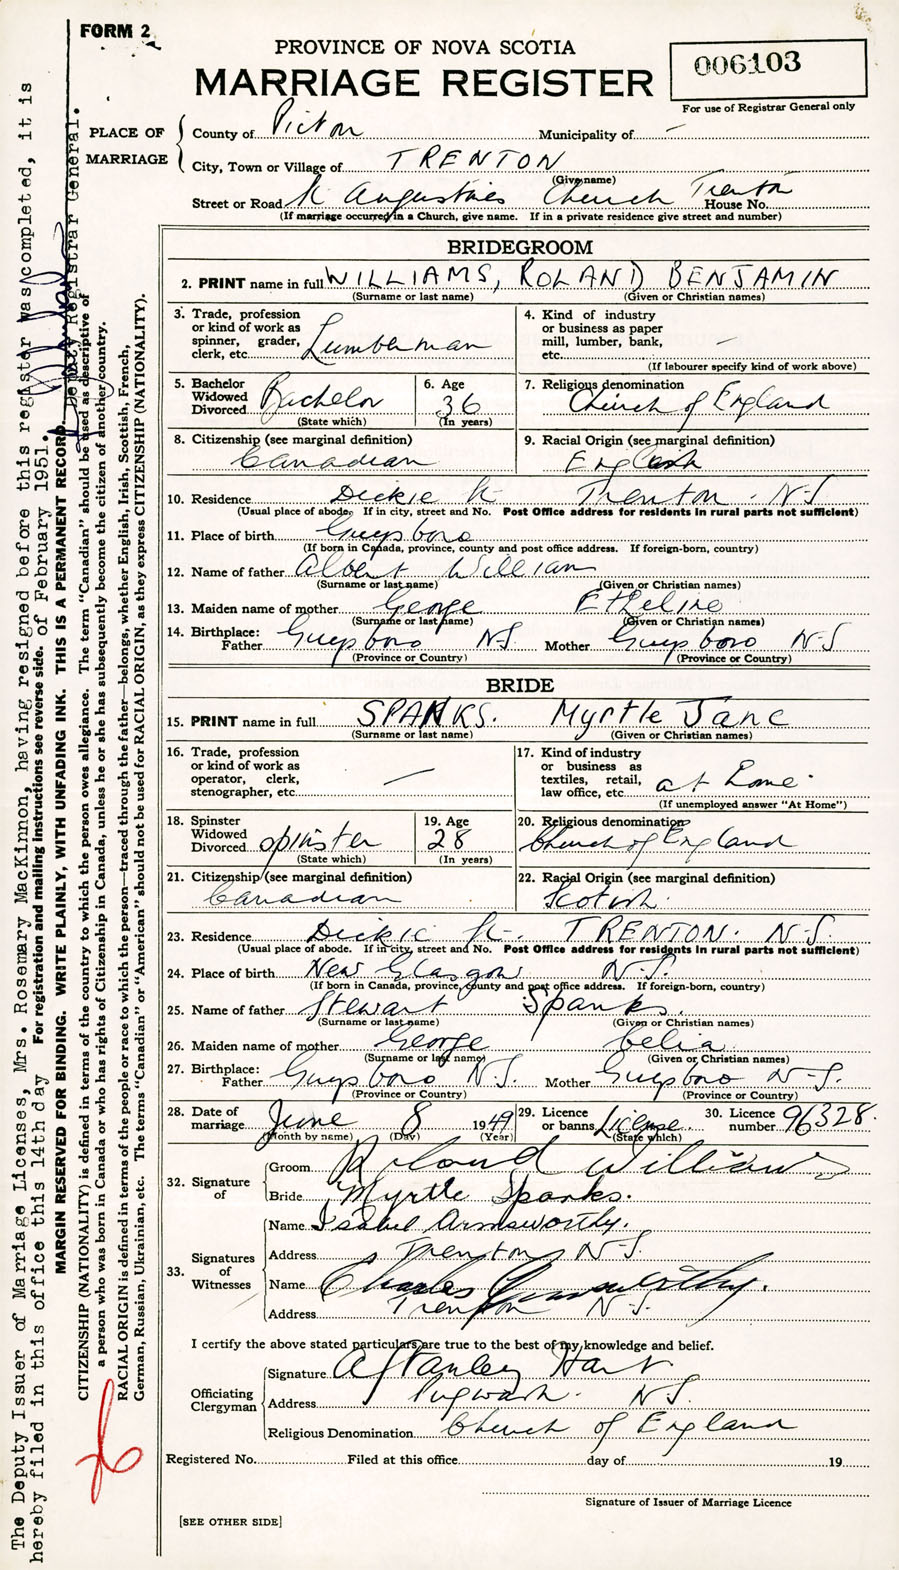 FORM 2
PROVINCE OF NOVA SCOTIA
MARRIAGE REGISTER
006103
For use of Registrar General only
PLACE OF MARRIAGE
County of Picton Municipality of –
City, Town or Village of TRENTON
(Give name)
Street or Road St Augustines Church Trenton House No.
(If marriage occurred in a Church, give name. If in a private residence give street and number)
BRIDEGROOM
2. PRINT name in full WILLIAMS, ROLAND BENJAMIN
(Surname or last name) (Given or Christian names)
3. Trade, profession or kind of work as spinner, grader, clerk, etc. Lumberman
4. Kind of industry or business as paper mill, lumber, bank, etc. –
(If labourer specify kind of work above)
5. Bachelor Widowed Divorced Bachelor
(State which)
6. Age 36
(In years)
7. Religious denomination Church of England
8. Citizenship (see marginal definition) Canadian
9. Racial Origin (see marginal definition) English
10. Residence Dickie St Trenton. N-S
(Usual place of abode. If in city, street and No. Post Office address for residents in rural parts not sufficient)
11. Place of birth Guysboro
(If born in Canada, province, county and post office address. If foreign-born, country)
12. Name of father Albert William
(Surname or last name) (Given or Christian names)
13. Maiden name of mother George Etheline
(Surname or last name) (Given or Christian names)
14. Birthplace: Father Guysboro N.S. Mother Guysboro N-S
(Province or Country) (Province or Country)
BRIDE
15. PRINT name in full SPANKS. Myrtle Jane
(Surname or last name) (Given or Christian names)
16. Trade, profession or kind of work as operator, clerk, stenographer, etc. –
17. Kind of industry or business as textiles, retail, law office, etc. at Home.
(If unemployed answer "At Home")
18. Spinster Widowed Divorced spinster
(State which)
19. Age 28
(In years)
20. Religious denomination Church of England
21. Citizenship (see marginal definition) Canadian
22. Racial Origin (see marginal definition) Scotish.
23. Residence Dickie St. TRENTON. N.S.
(Usual place of abode. If in city, street and No. Post Office address for residents in rural parts not sufficient)
24. Place of birth New Glasgow N.S.
(If born in Canada, province, county and post office address. If foreign-born, country)
25. Name of father Stewart Spanks.
(Surname or last name) (Given or Christian names)
26. Maiden name of mother George Celia
(Surname or last name) (Given or Christian names)
27. Birthplace: Father Guysboro N.S. Mother Guysboro N-S.
(Province or Country) (Province or Country)
28. Date of marriage June 8 1949
(Month by name) (Day) (Year)
29. Licence or banns License.
(State which)
30. Licence number 96328.
32. Signature of
Groom Roland Williams
Bride Myrtle Spanks.
33. Signatures of Witnesses
Name Isabel Armsworthy.
Address Trenton N-S.
Name Charles Armsworthy.
Address Trenton N.S.
I certify the above stated particulars are true to the best of my knowledge and belief.
Officiating Clergyman
Signature A Stanley Hart
Address Pugwash. N.S.
Religious Denomination Church of England
Registered No. Filed at this office day of 19
Signature of Issuer of Marriage Licence
[SEE OTHER SIDE]
The Deputy Issuer of Marriage Licenses, Mrs. Rosemary MacKinnon, having resigned before this register was completed, it is
hereby filed in this office this 14th day of February 1951.
Deputy Registrar General.
For registration and mailing instructions see reverse side.
MARGIN RESERVED FOR BINDING. WRITE PLAINLY, WITH UNFADING INK. THIS IS A PERMANENT RECORD
CITIZENSHIP (NATIONALITY) is defined in terms of the country to which the person owes allegiance. The term "Canadian" should be used as descriptive of
a person who was born in Canada or who has rights of Citizenship in Canada, unless he or she has subsequently become the citizen of another country.
RACIAL ORIGIN is defined in terms of the people or race to which the person—traced through the father—belongs, whether English, Irish, Scottish, French,
German, Russian, Ukrainian, etc. The terms "Canadian" or "American" should not be used for RACIAL ORIGIN, as they express CITIZENSHIP (NATIONALITY).